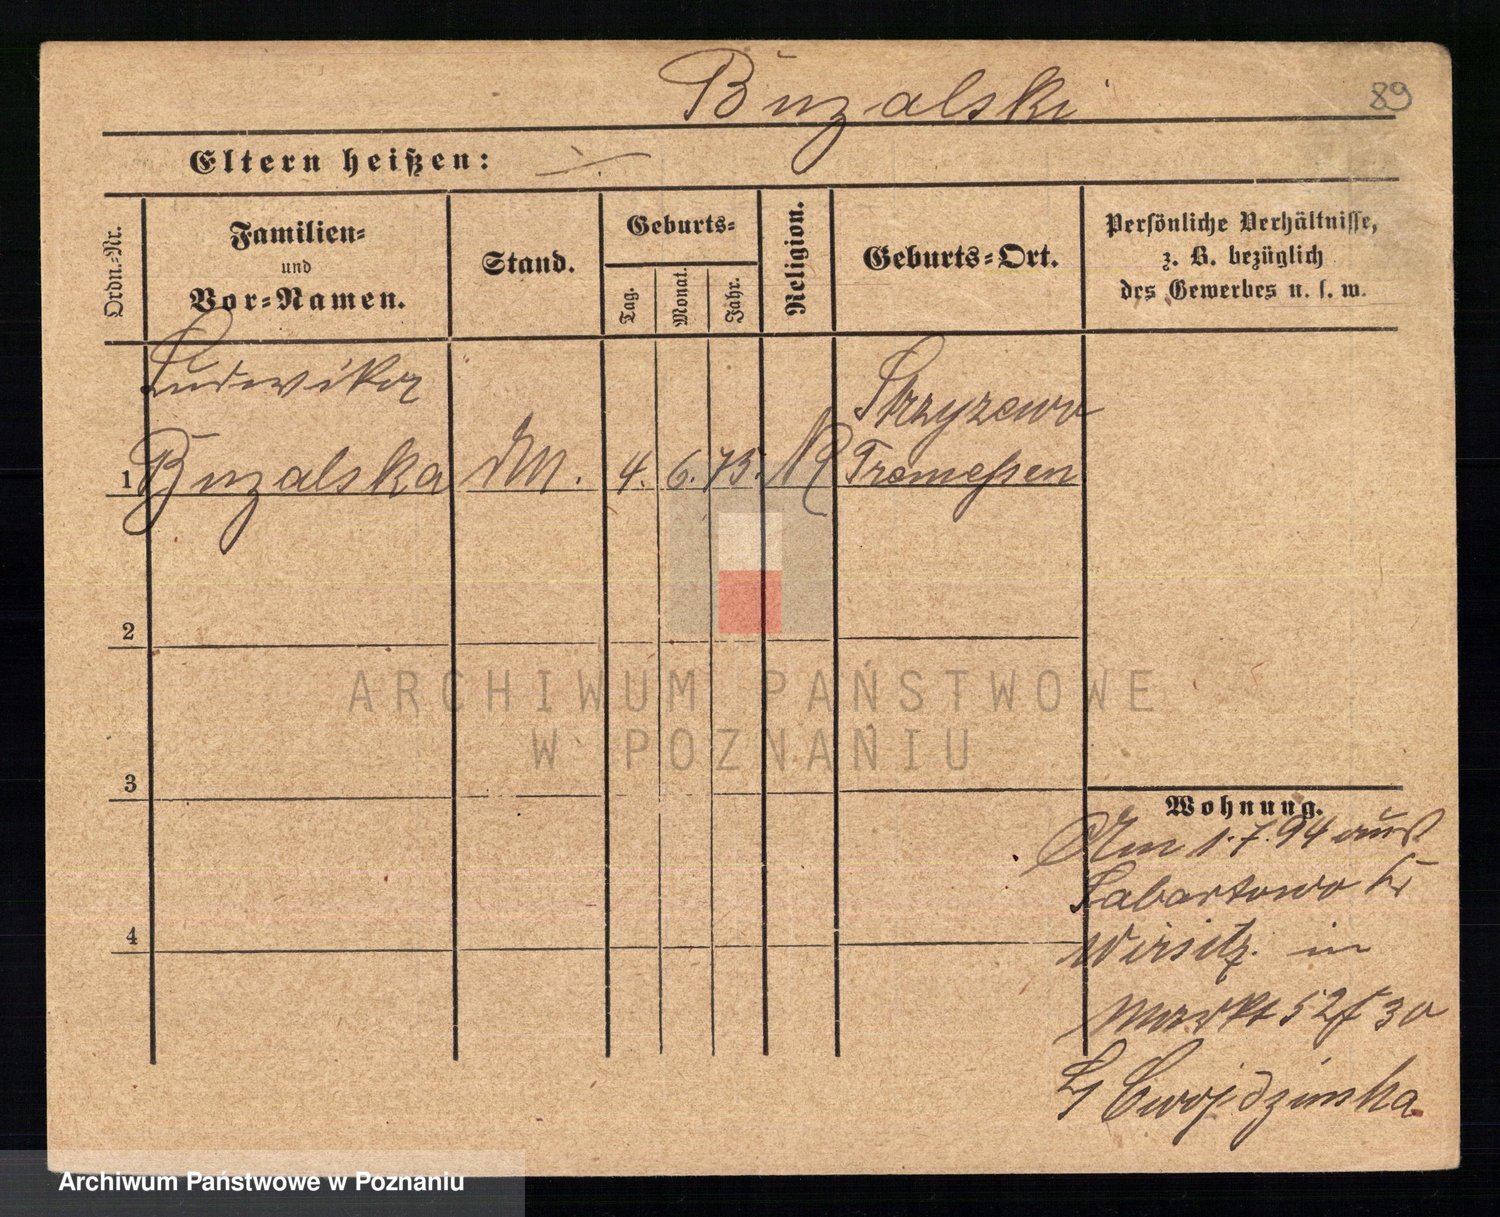 Buzalski
89
Eltern heißen: ÷
Ordn.-Nr.
Familien-
und
Vor-Namen.
Stand.
Geburts-
Tag.
Monat.
Jahr.
Religion.
Geburts-Ort.
Persönliche Verhältnisse,
z. B. bezüglich
des Gewerbes u. s. w.
Ludwika
Skrzyzewo
1 Buzalska DM. 4. 6. 75. Tremessen
2
3
4
Wohnung.
Am 1.7.94 aus
Labartowo Kr
Wirsitz. in
Markt 52
Cwojdzinska
ARCHIWUM PAŃSTWOWE
W POZNANIU
Archiwum Państwowe w Poznaniu